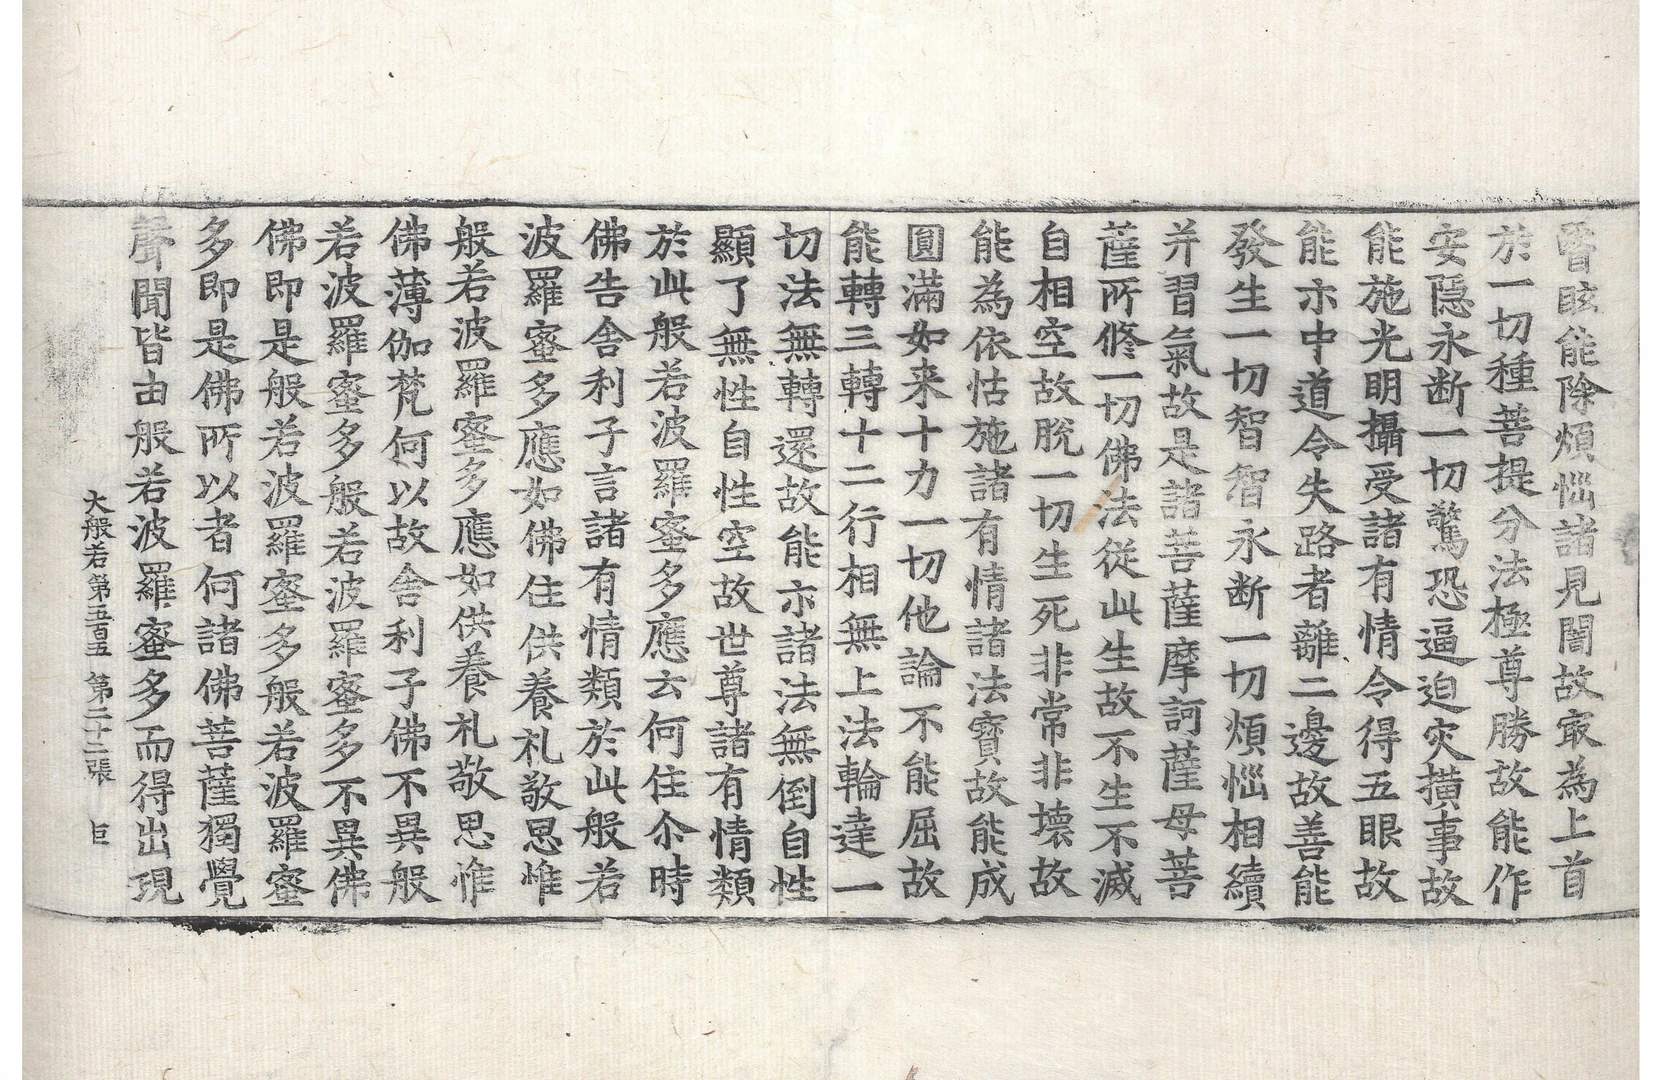 瞖眩能除煩惱諸見闇故㝡為上首
於一切種菩提分法極尊勝故能作
安隱永断一切驚恐逼迫灾撗事故
能施光明攝受諸有情令得五眼故
能示中道令失路者離二邊故善能
發生一切智智永断一切煩惱相續
并習氣故是諸菩薩摩訶薩母菩
薩所修一切佛法從此生故不生不滅
自相空故脫一切生死非常非壞故
能為依怙施諸有情諸法寶故能成
圓滿如来十力一切他論不能屈故
能轉三轉十二行相無上法輪達一
切法無轉還故能示諸法無倒自性
顯了無性自性空故世尊諸有情類
於此般若波羅蜜多應云何住尒時
佛告舍利子言諸有情類於此般若
波羅蜜多應如佛住供養礼敬思惟
般若波羅蜜多應如供養礼敬思惟
佛薄伽梵何以故舍利子佛不異般
若波羅蜜多般若波羅蜜多不異佛
佛即是般若波羅蜜多般若波羅蜜
多即是佛所以者何諸佛菩薩獨覺
聲聞皆由般若波羅蜜多而得出現
大般若第五百五 第二十二張 巨